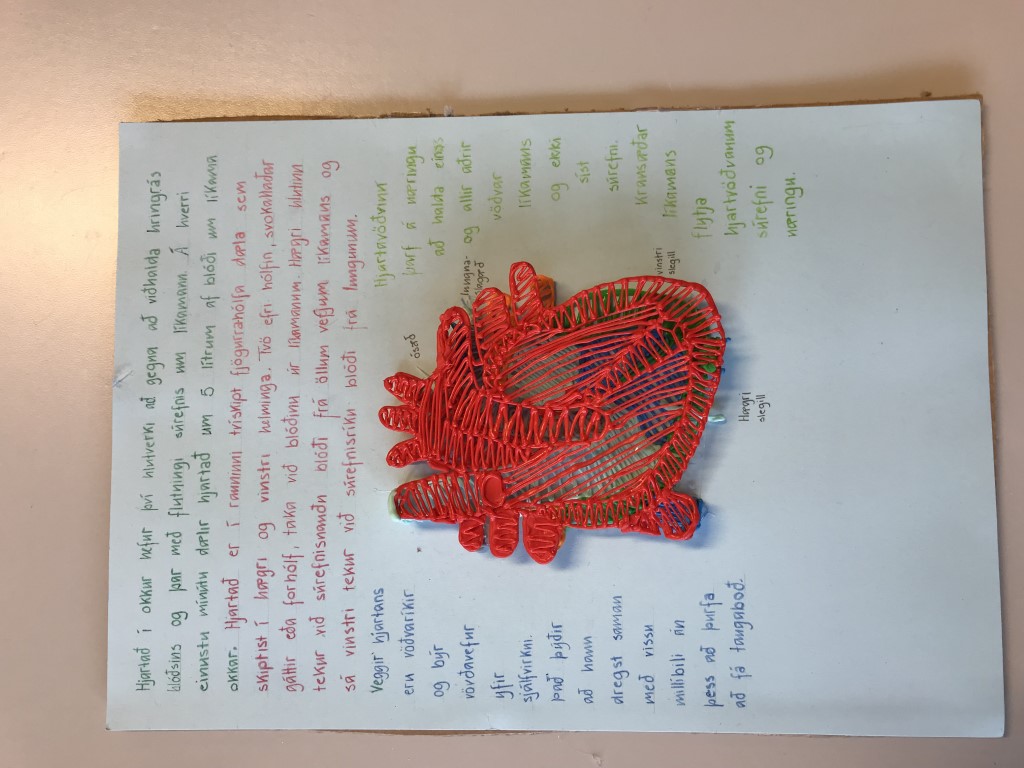 Hjartað í okkur hefur því hlutverki að gegna að viðhalda hringrás
blóðsins og þar með flutningi súrefnis um líkamann. Á hverri
einustu mínútu dælir hjartað um 5 lítrum af blóði um líkama
okkar. Hjartað er í rauninni tvískipt fjögurrahólfa dæla sem
skiptist í hægri og vinstri helminga. Tvö efri hólfin, svokallaðar
gáttir eða forhólf, taka við blóðinu úr líkamanum. Hægri hlutinn
tekur við súrefnisnauðu blóði frá öllum vefjum líkamans og
sá vinstri tekur við súrefnisríku blóði frá lungunum.
Veggir hjartans
eru vöðvaríkir
og býr
vörðavefur
yfir
sjálfvirkni.
það þýðir
að hann
dregst saman
með vissu
millibili án
þess að þurfa
að fá taugaboð.
ósæð
lungna-
slagæð
vinstri
slegill
Hægri
slegill
Hjartavöðvinn
þarf á næringu
að halda eins
og allir aðrir
vöðvar
líkamans
og ekki
síst
súrefni.
Kransæðar
líkamans
flytja
hjartvöðvanum
súrefni og
næringu.